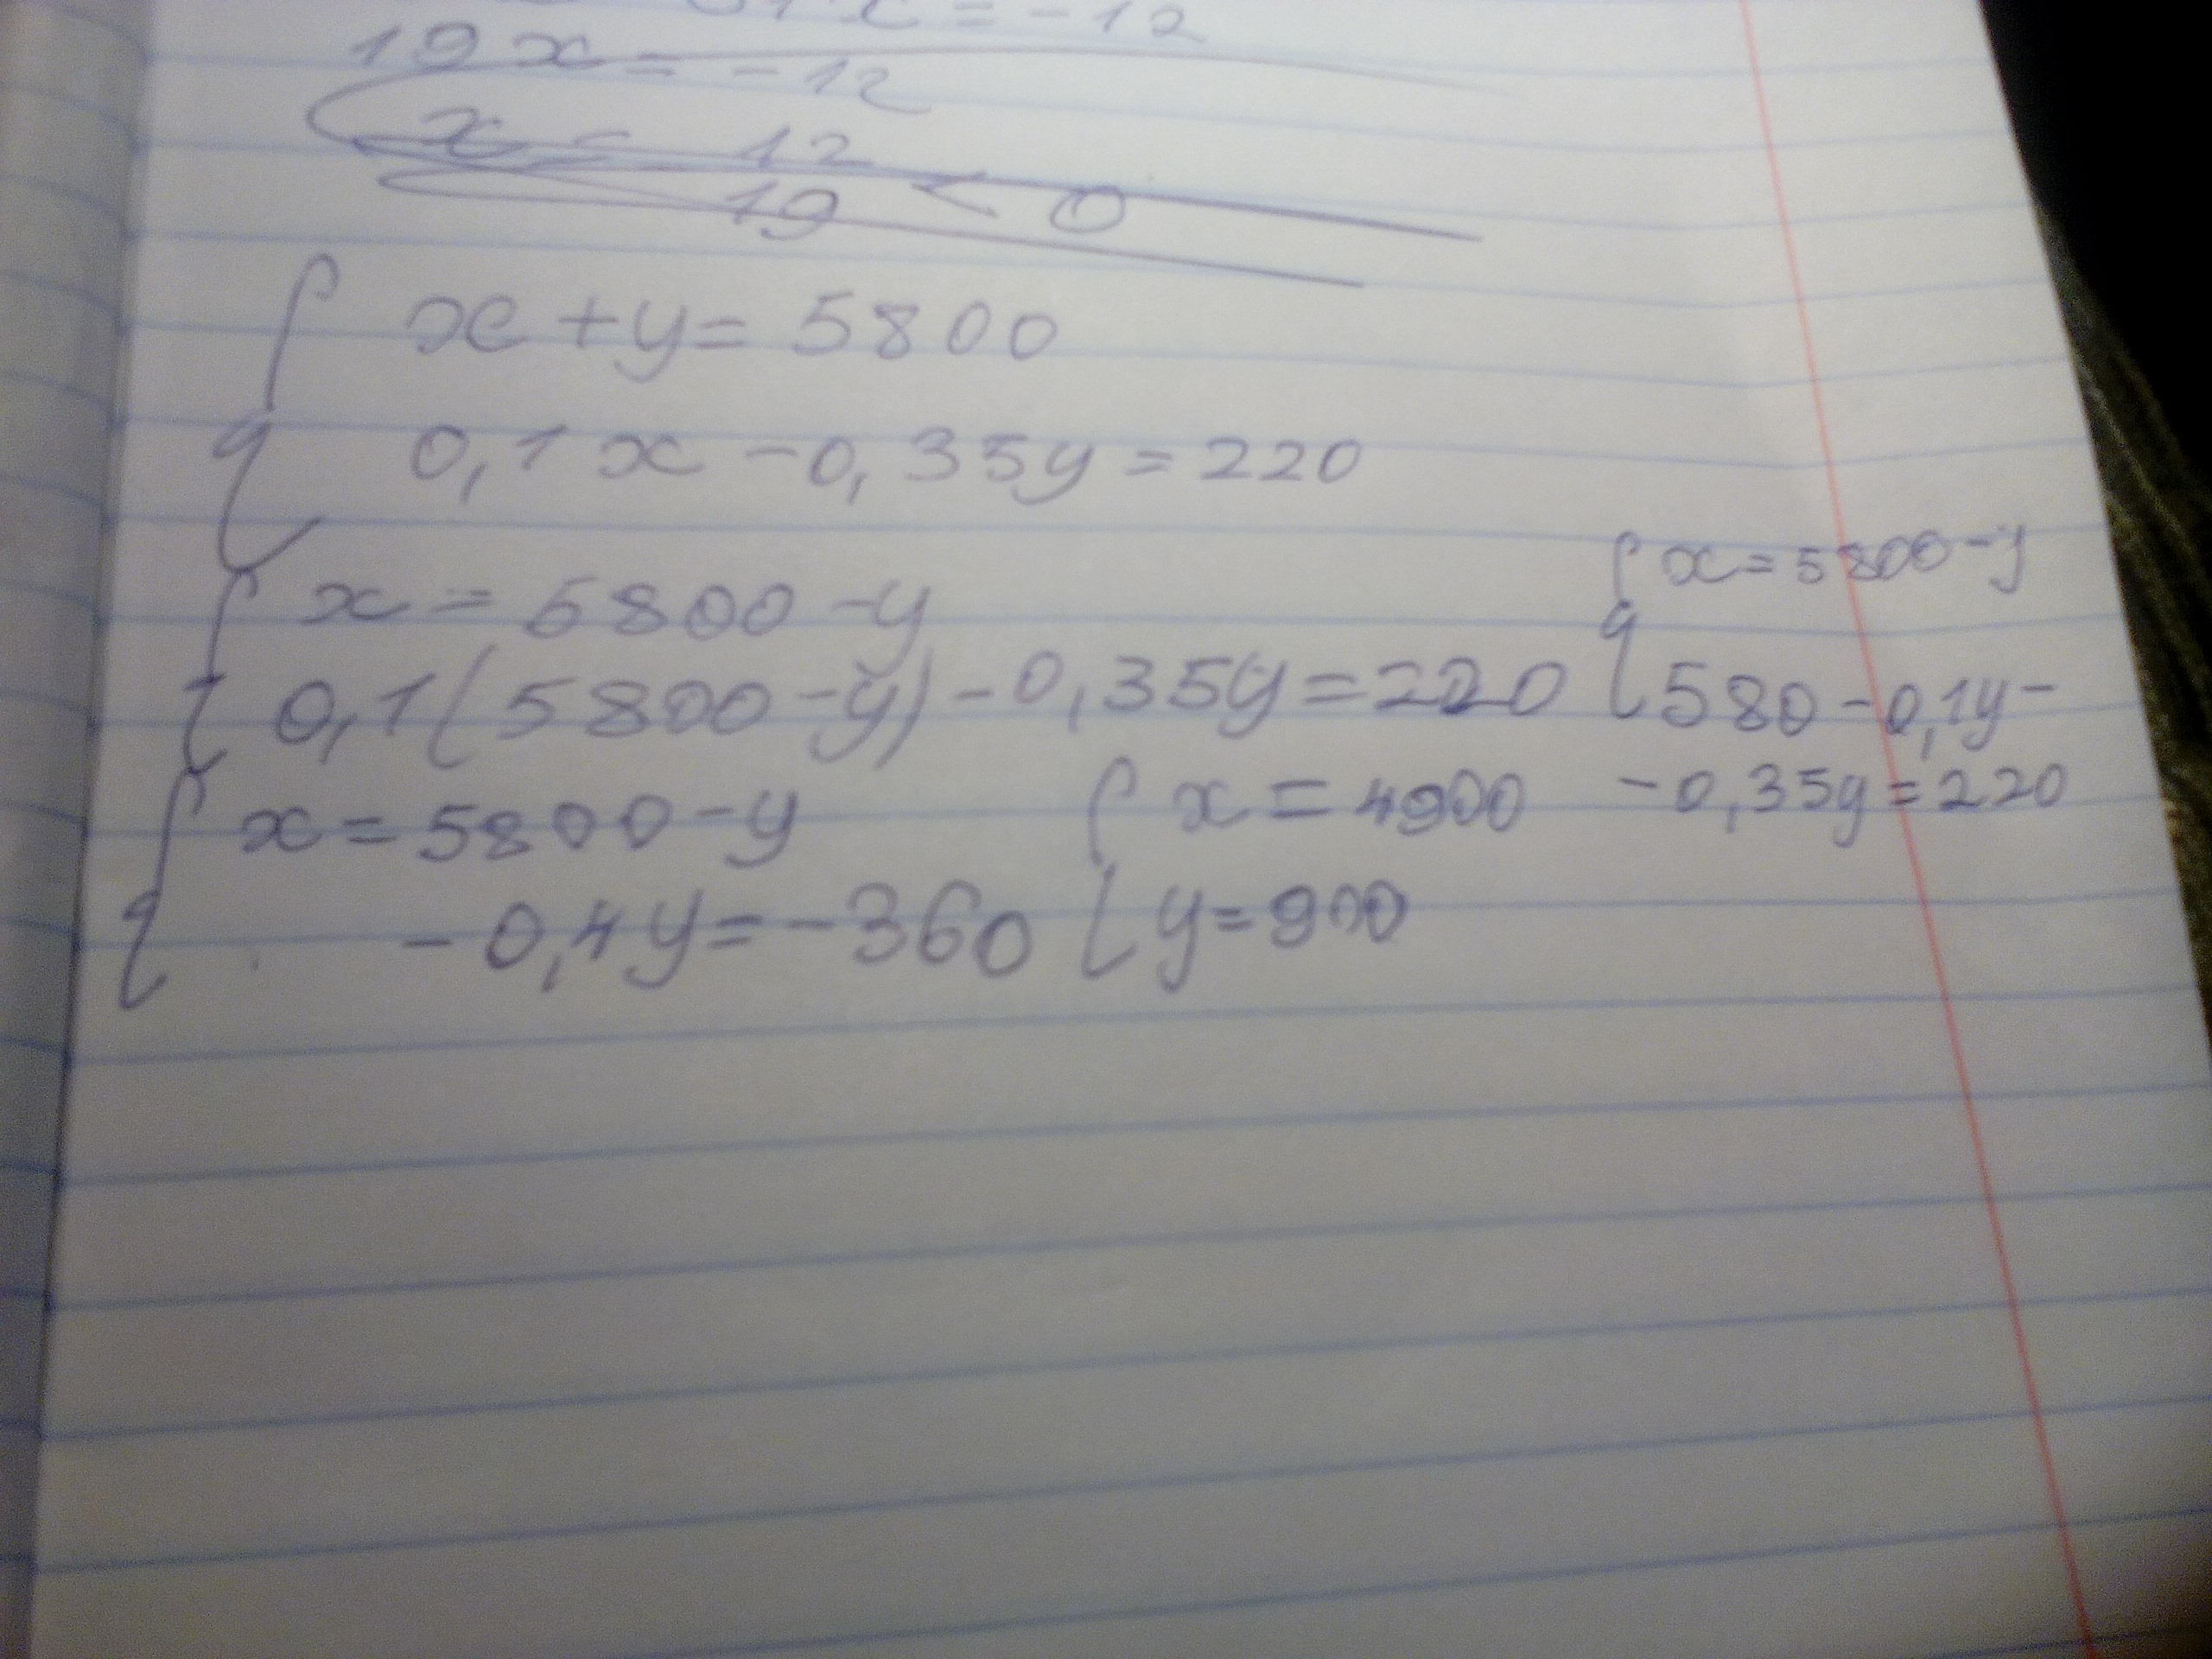 x = -12
19x = -12
x = 12
19 < 0
x + y = 5800
0,1x - 0,35y = 220
x = 5800 - y
0,1(5800 - y) - 0,35y = 220
x = 5800 - y
580 - 0,1y -
- 0,35y = 220
x = 5800 - y
- 0,4y = - 360
x = 4900
y = 900